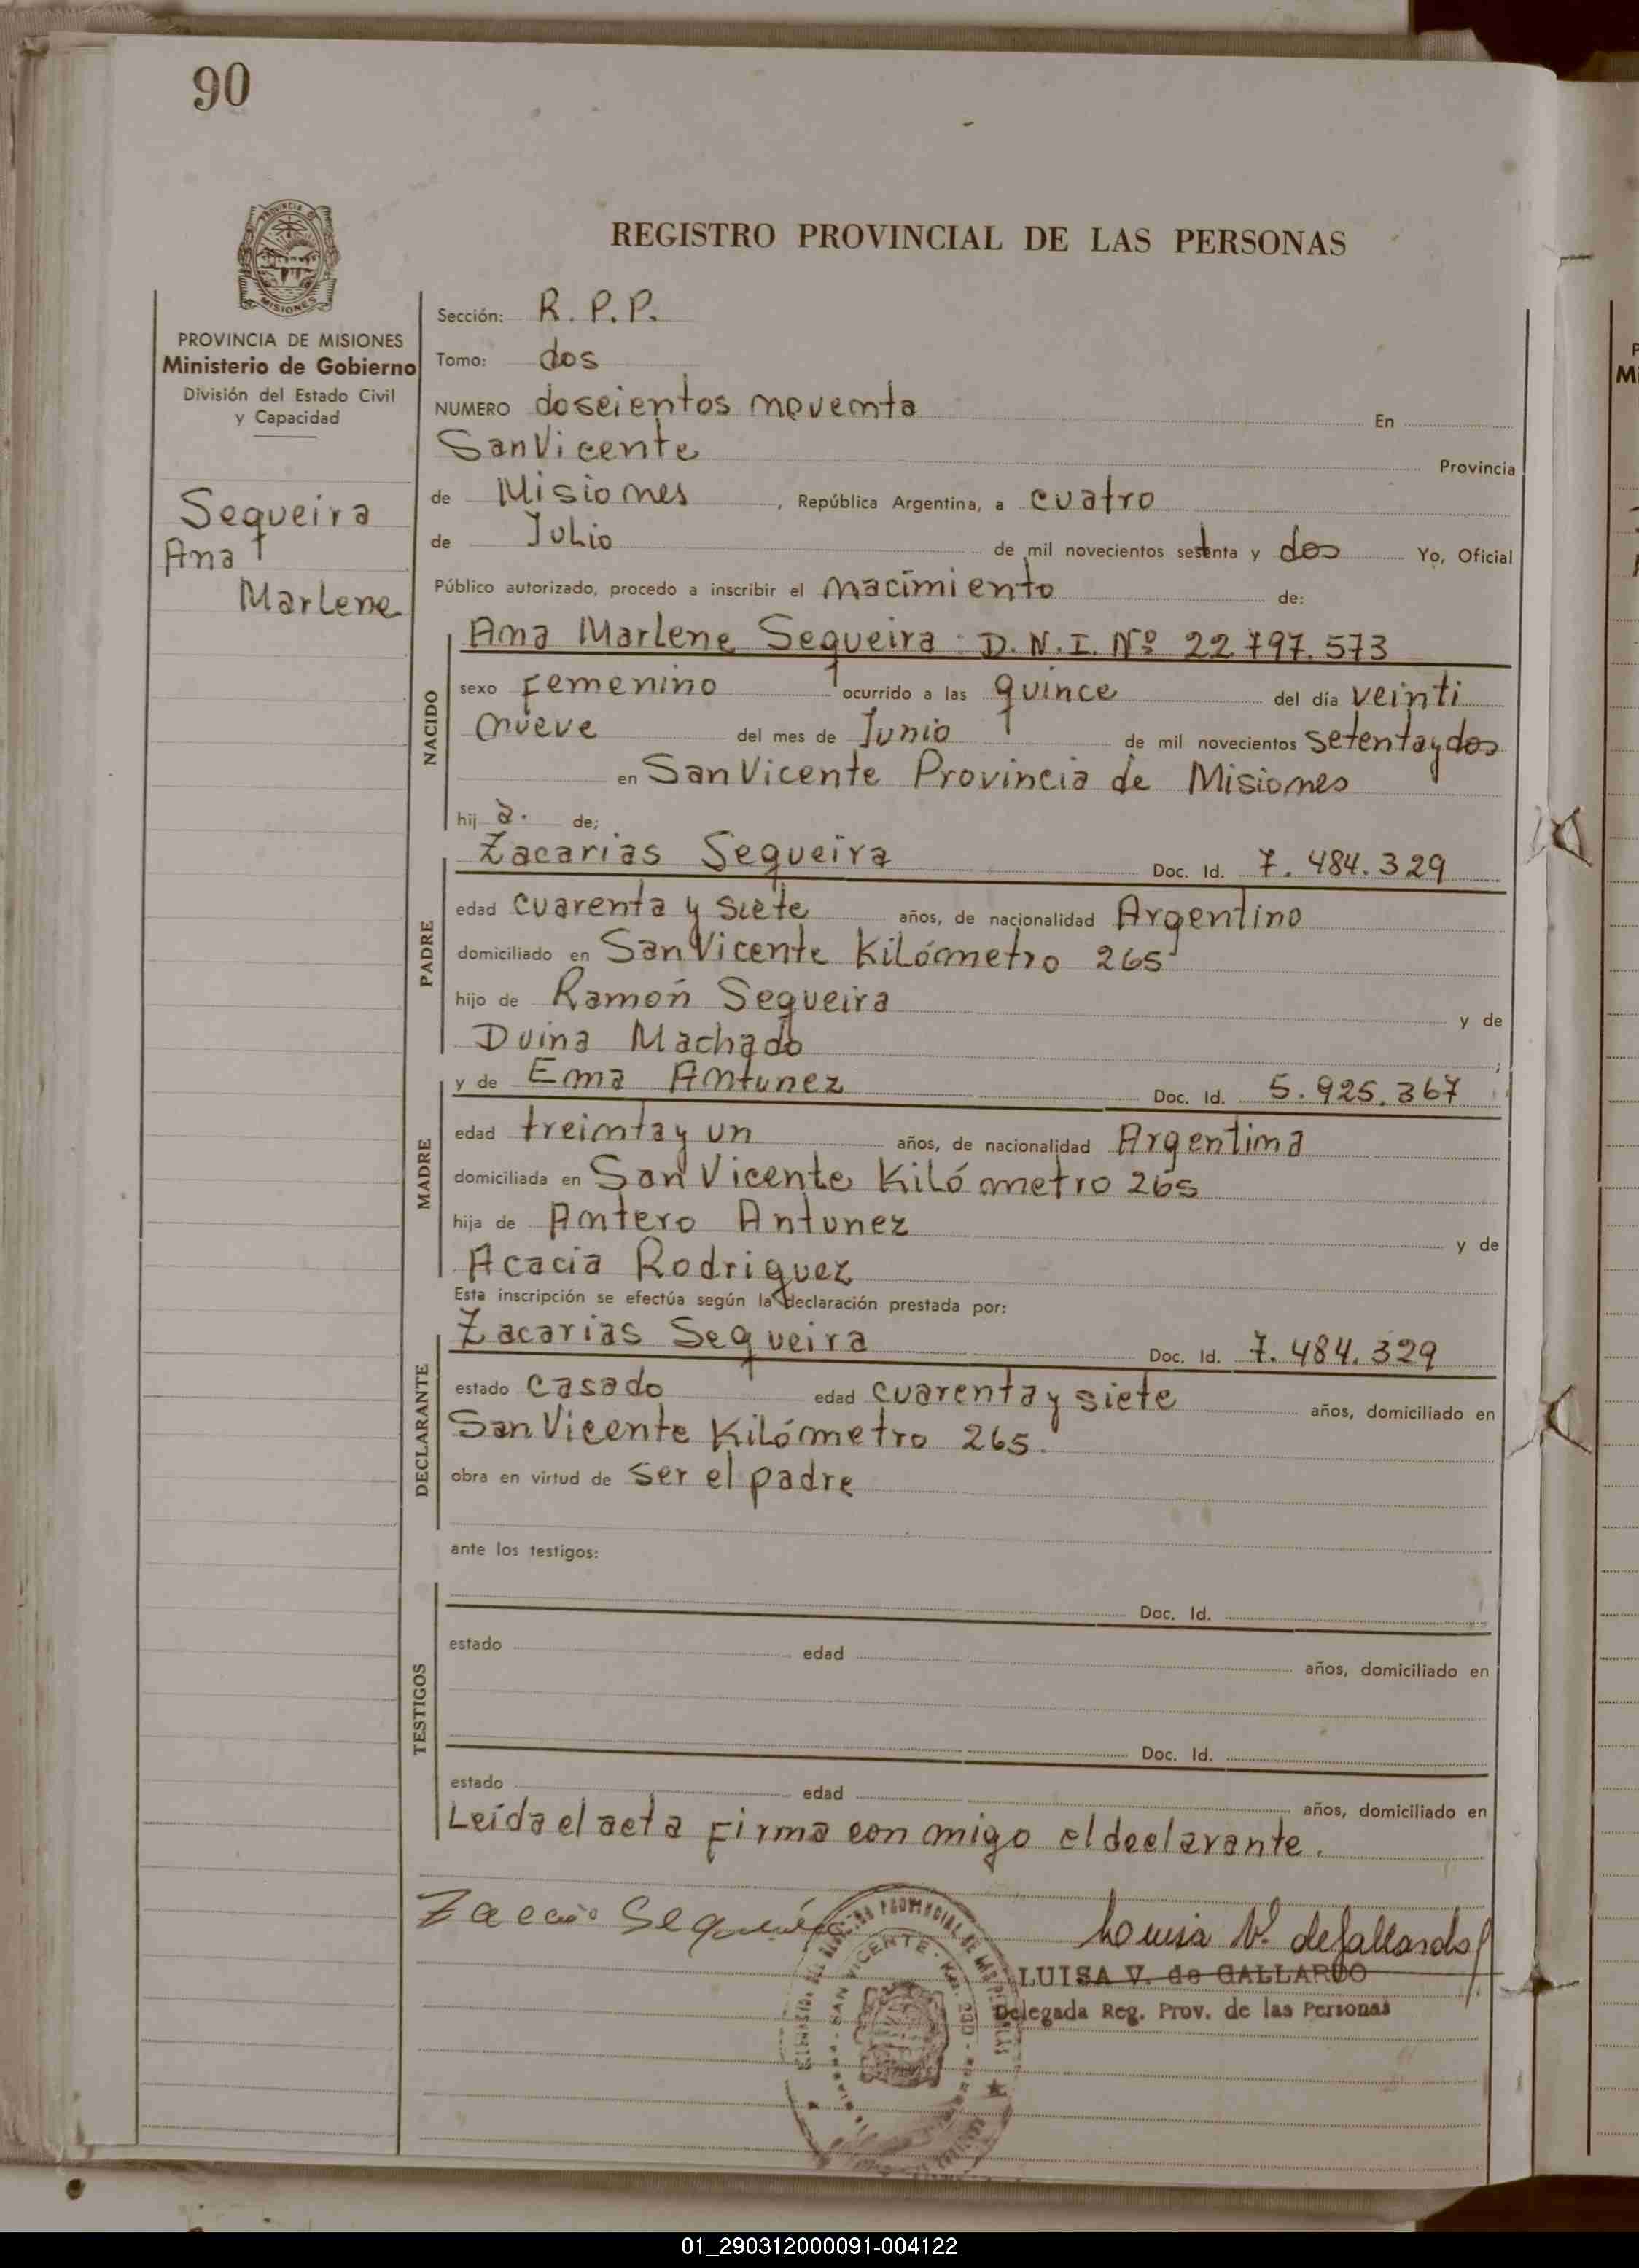 90
REGISTRO PROVINCIAL DE LAS PERSONAS
PROVINCIA DE
MISIONES
PROVINCIA DE MISIONES
Ministerio de Gobierno
División del Estado Civil
y Capacidad
Sequeira
Ana
Marlene
Sección: R. P. P.
Tomo: dos
NUMERO doscientos noventa En
San Vicente Provincia
de Misiones, República Argentina, a cuatro
de Julio de mil novecientos setenta y dos Yo, Oficial
Público autorizado, procedo a inscribir el nacimiento de:
NACIDO
Ana Marlene Sequeira D.N.I. Nº 22.797.573
sexo femenino ocurrido a las quince del día veinti
nueve del mes de Junio de mil novecientos setenta y dos
en San Vicente Provincia de Misiones
hij a. de;
PADRE
Zacarias Sequeira Doc. Id. 7.484.329
edad cuarenta y siete años, de nacionalidad Argentino
domiciliado en San Vicente Kilómetro 265
hijo de Ramón Sequeira y de
Duina Machado ;
MADRE
y de Ema Antunez Doc. Id. 5.925.367
edad treinta y un años, de nacionalidad Argentina
domiciliada en San Vicente Kilómetro 265
hija de Antero Antunez y de
Acacia Rodriguez
Esta inscripción se efectúa según la declaración prestada por:
DECLARANTE
Zacarias Sequeira Doc. Id. 7.484.329
estado casado edad cuarenta y siete años, domiciliado en
San Vicente Kilómetro 265.
obra en virtud de ser el padre
ante los testigos:
TESTIGOS
Doc. Id.
estado edad años, domiciliado en
Doc. Id.
estado edad años, domiciliado en
Leída el acta firma con migo el declarante.
Zacarias Sequeira
Luisa V. de Gallardo
LUISA V. de GALLARDO
Delegada Reg. Prov. de las Personas
PROVINCIAL DE LAS PERSONAS
SAN VICENTE
01_290312000091-004122